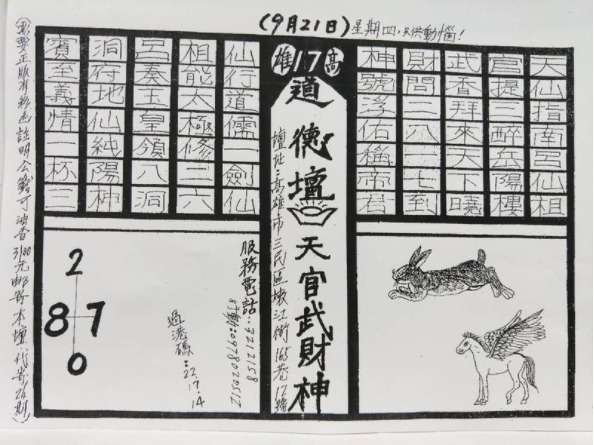 (9月21日) 星期四.只供動惱!
天仙指南呂仙祖
官提三醉岳陽樓
武香拜來下曉
財問二八三七到
神號浮佑稱帝君
高17雄
道德壇
天官武財神
壇址:高雄市三民區嫩江街165巷12號
仙行道儒一劍仙
祖能太極修二六
呂奏玉皇領八洞
洞府地仙純陽神
賓至義情一杯三
服務電話:3212158
行動:0978020517
過港碼:22
17
14
2
8 7
0
要正版有彩色註明公籤可油香元郵寄本壇代寄26期)